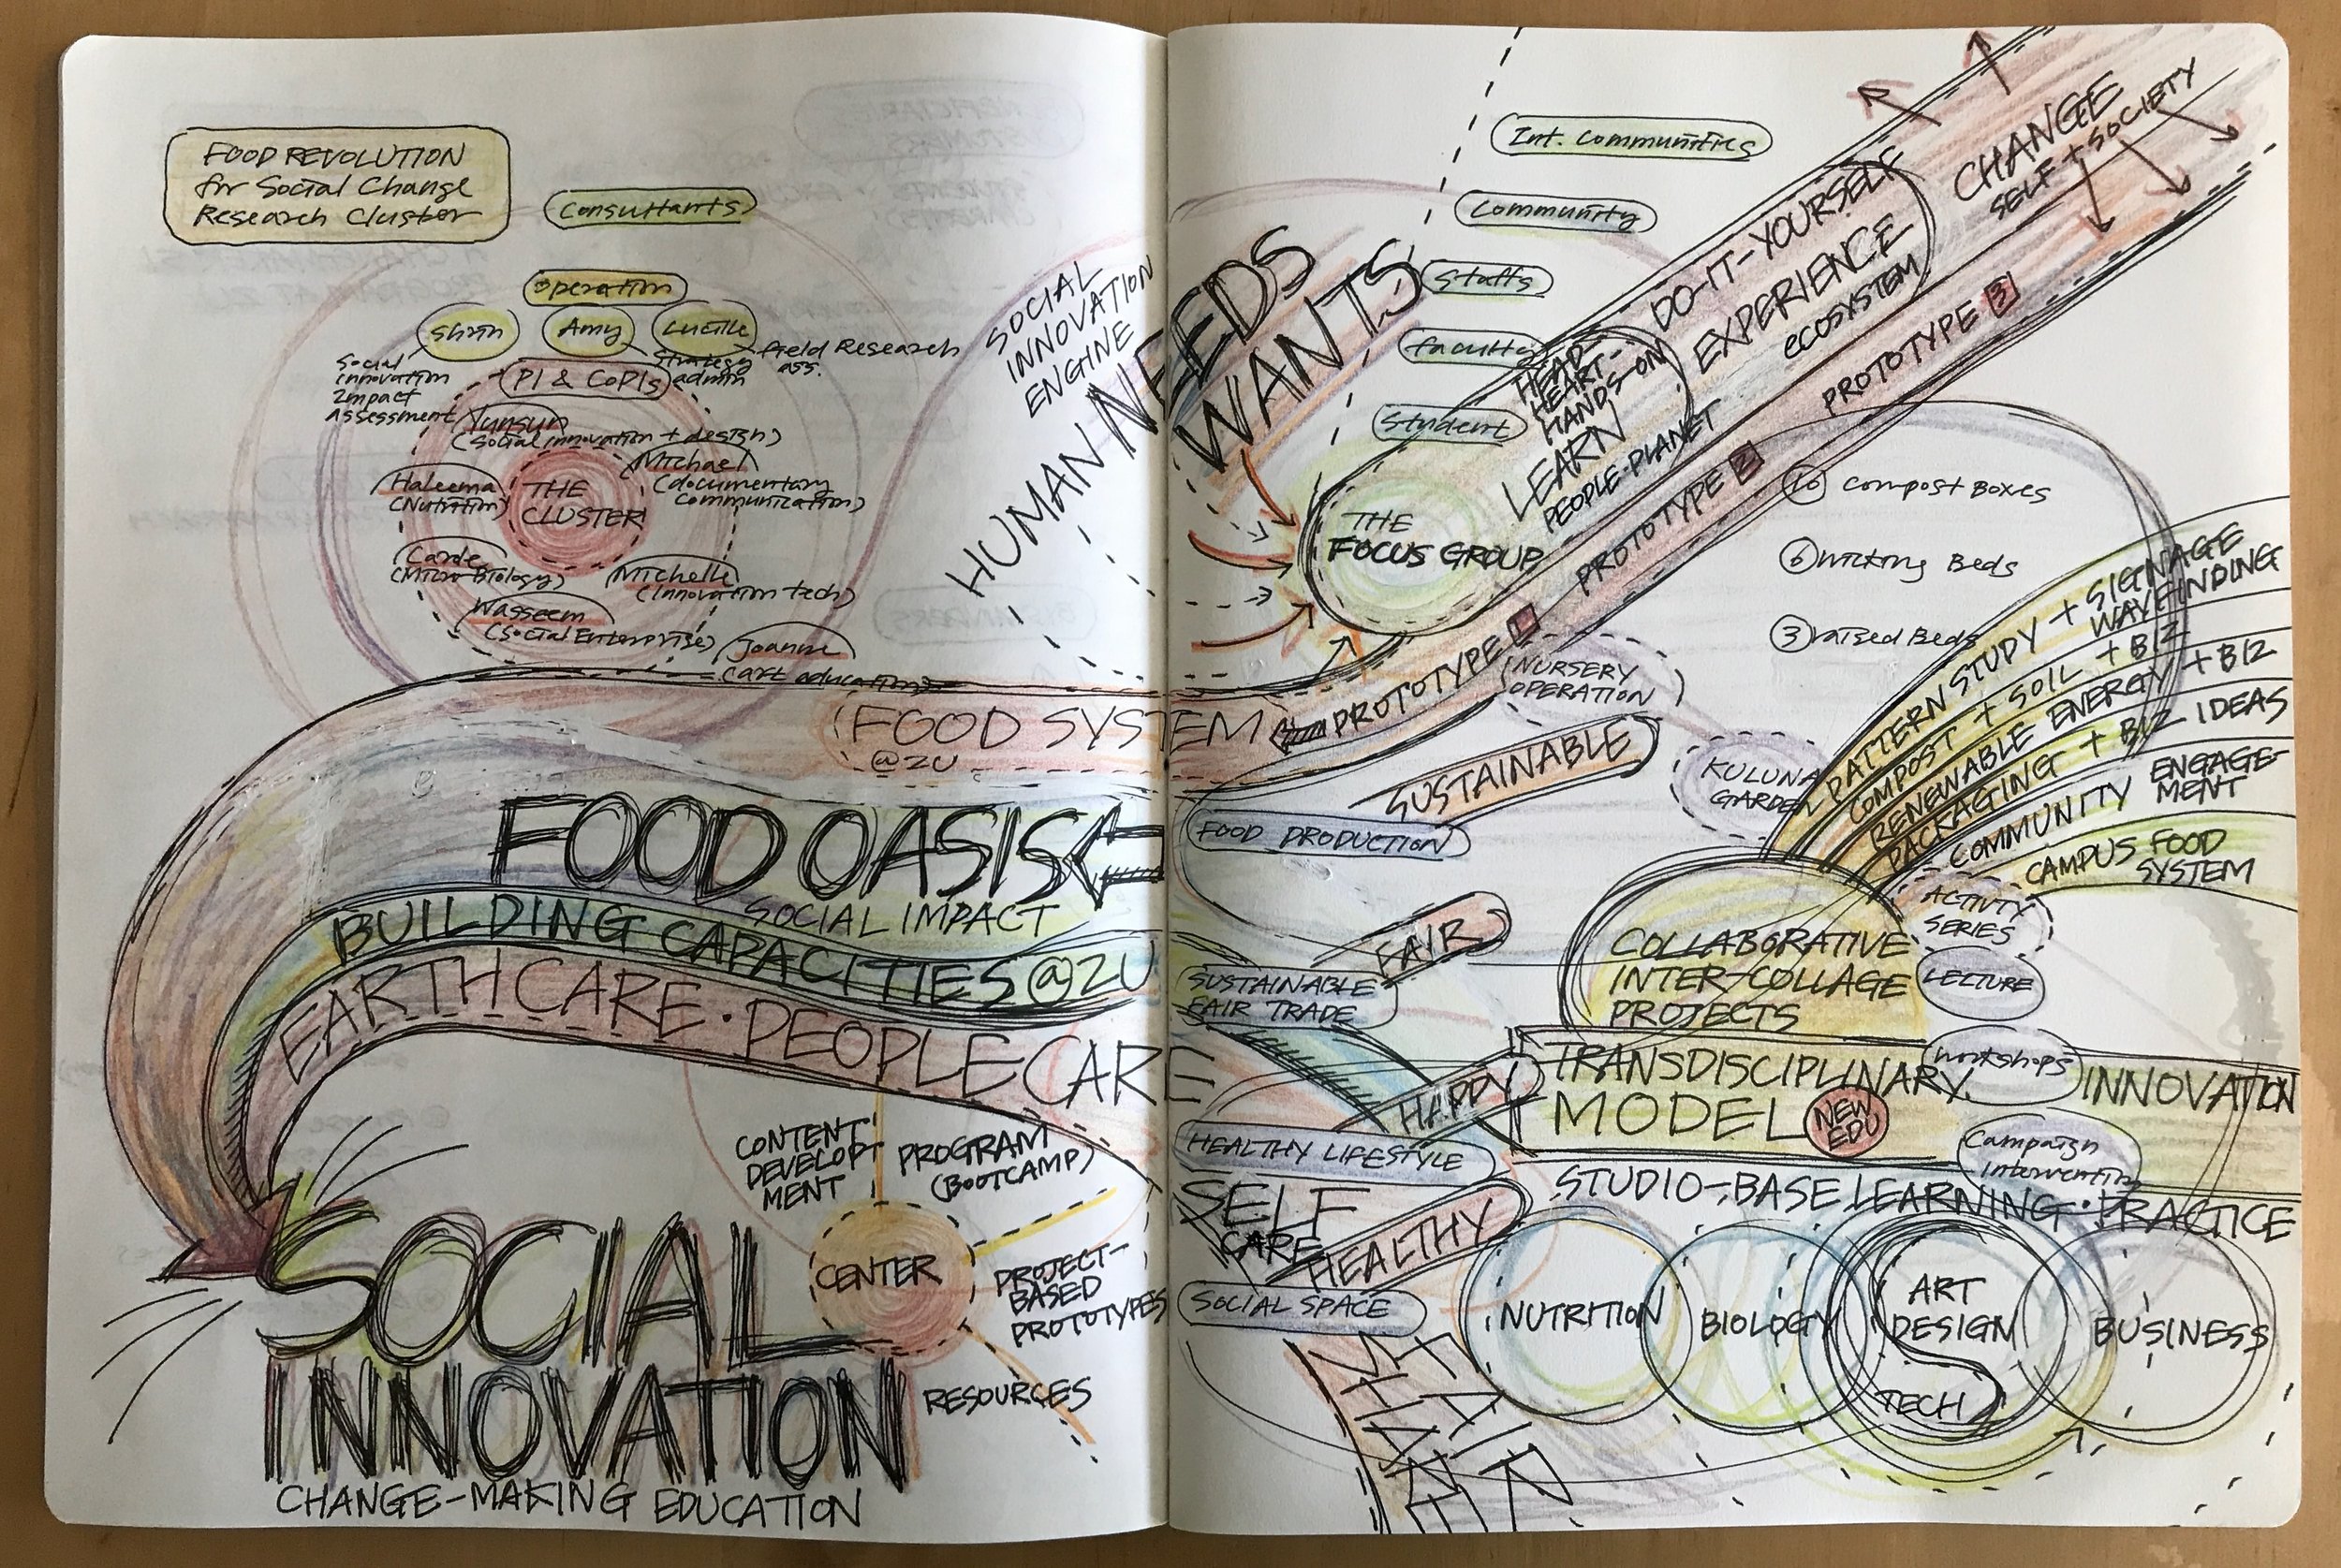 FOOD REVOLUTION
for Social Change
Research Cluster
Consultants
Operation
Shin
Amy
Lucille
Social
innovation
Impact
Assessment
Strategy
admin
field Research
ass.
PI & CoPIs
Yunsun
(Social innovation + design)
Michael
(documentary
communication)
Haleema
(Nutrition)
THE
CLUSTER
(Micro Biology)
Michelle
(Innovation tech)
Wasseem
(Social Enterprise)
Joanne
(art education)
SOCIAL
INNOVATION
ENGINE
HUMAN NEEDS
WANTS
(FOOD SYSTEM
@ZU
FOOD OASIS
SOCIAL IMPACT
BUILDING CAPACITIES @ZU
EARTH CARE · PEOPLE CARE
CONTENT
DEVELOPT
MENT
PROGRAM
(BOOTCAMP)
CENTER
PROJECT-
BASED
PROTOTYPES
RESOURCES
SOCIAL
INNOVATION
CHANGE-MAKING EDUCATION
Int. Communities
Community
Staffs
faculty
Student
THE
FOCUS GROUP
HEAD-
HEART-
HANDS-ON
LEARN
PEOPLE-PLANET
DO-IT-YOURSELF
EXPERIENCE
ECOSYSTEM
CHANGE
SELF + SOCIETY
PROTOTYPE 1
PROTOTYPE 2
PROTOTYPE 3
10 Compost Boxes
6 Wicking Beds
3 raised Beds
NURSERY
OPERATION
KULUNA
GARDEN
SUSTAINABLE
FOOD PRODUCTION
FAIR
SUSTAINABLE
FAIR TRADE
HAPPY
HEALTHY LIFESTYLE
SELF
CARE
HEALTHY
SOCIAL SPACE
FAIR
SHARE
PATTERN STUDY + SIGNAGE
WAYFINDING
COMPOST + SOIL + BIZ
RENEWABLE ENERGY + BIZ
PACKAGING + BIZ IDEAS
COMMUNITY ENGAGE-
MENT
CAMPUS FOOD
SYSTEM
COLLABORATIVE
INTER-COLLAGE
PROJECTS
ACTIVTY
SERIES
LECTURE
Workshops
Campaign
Intervention
TRANSDISCIPLINARY
MODEL
NEW
EDU
INNOVATION
STUDIO-BASE LEARNING · PRACTICE
NUTRITION
BIOLOGY
ART
DESIGN
TECH
BUSINESS